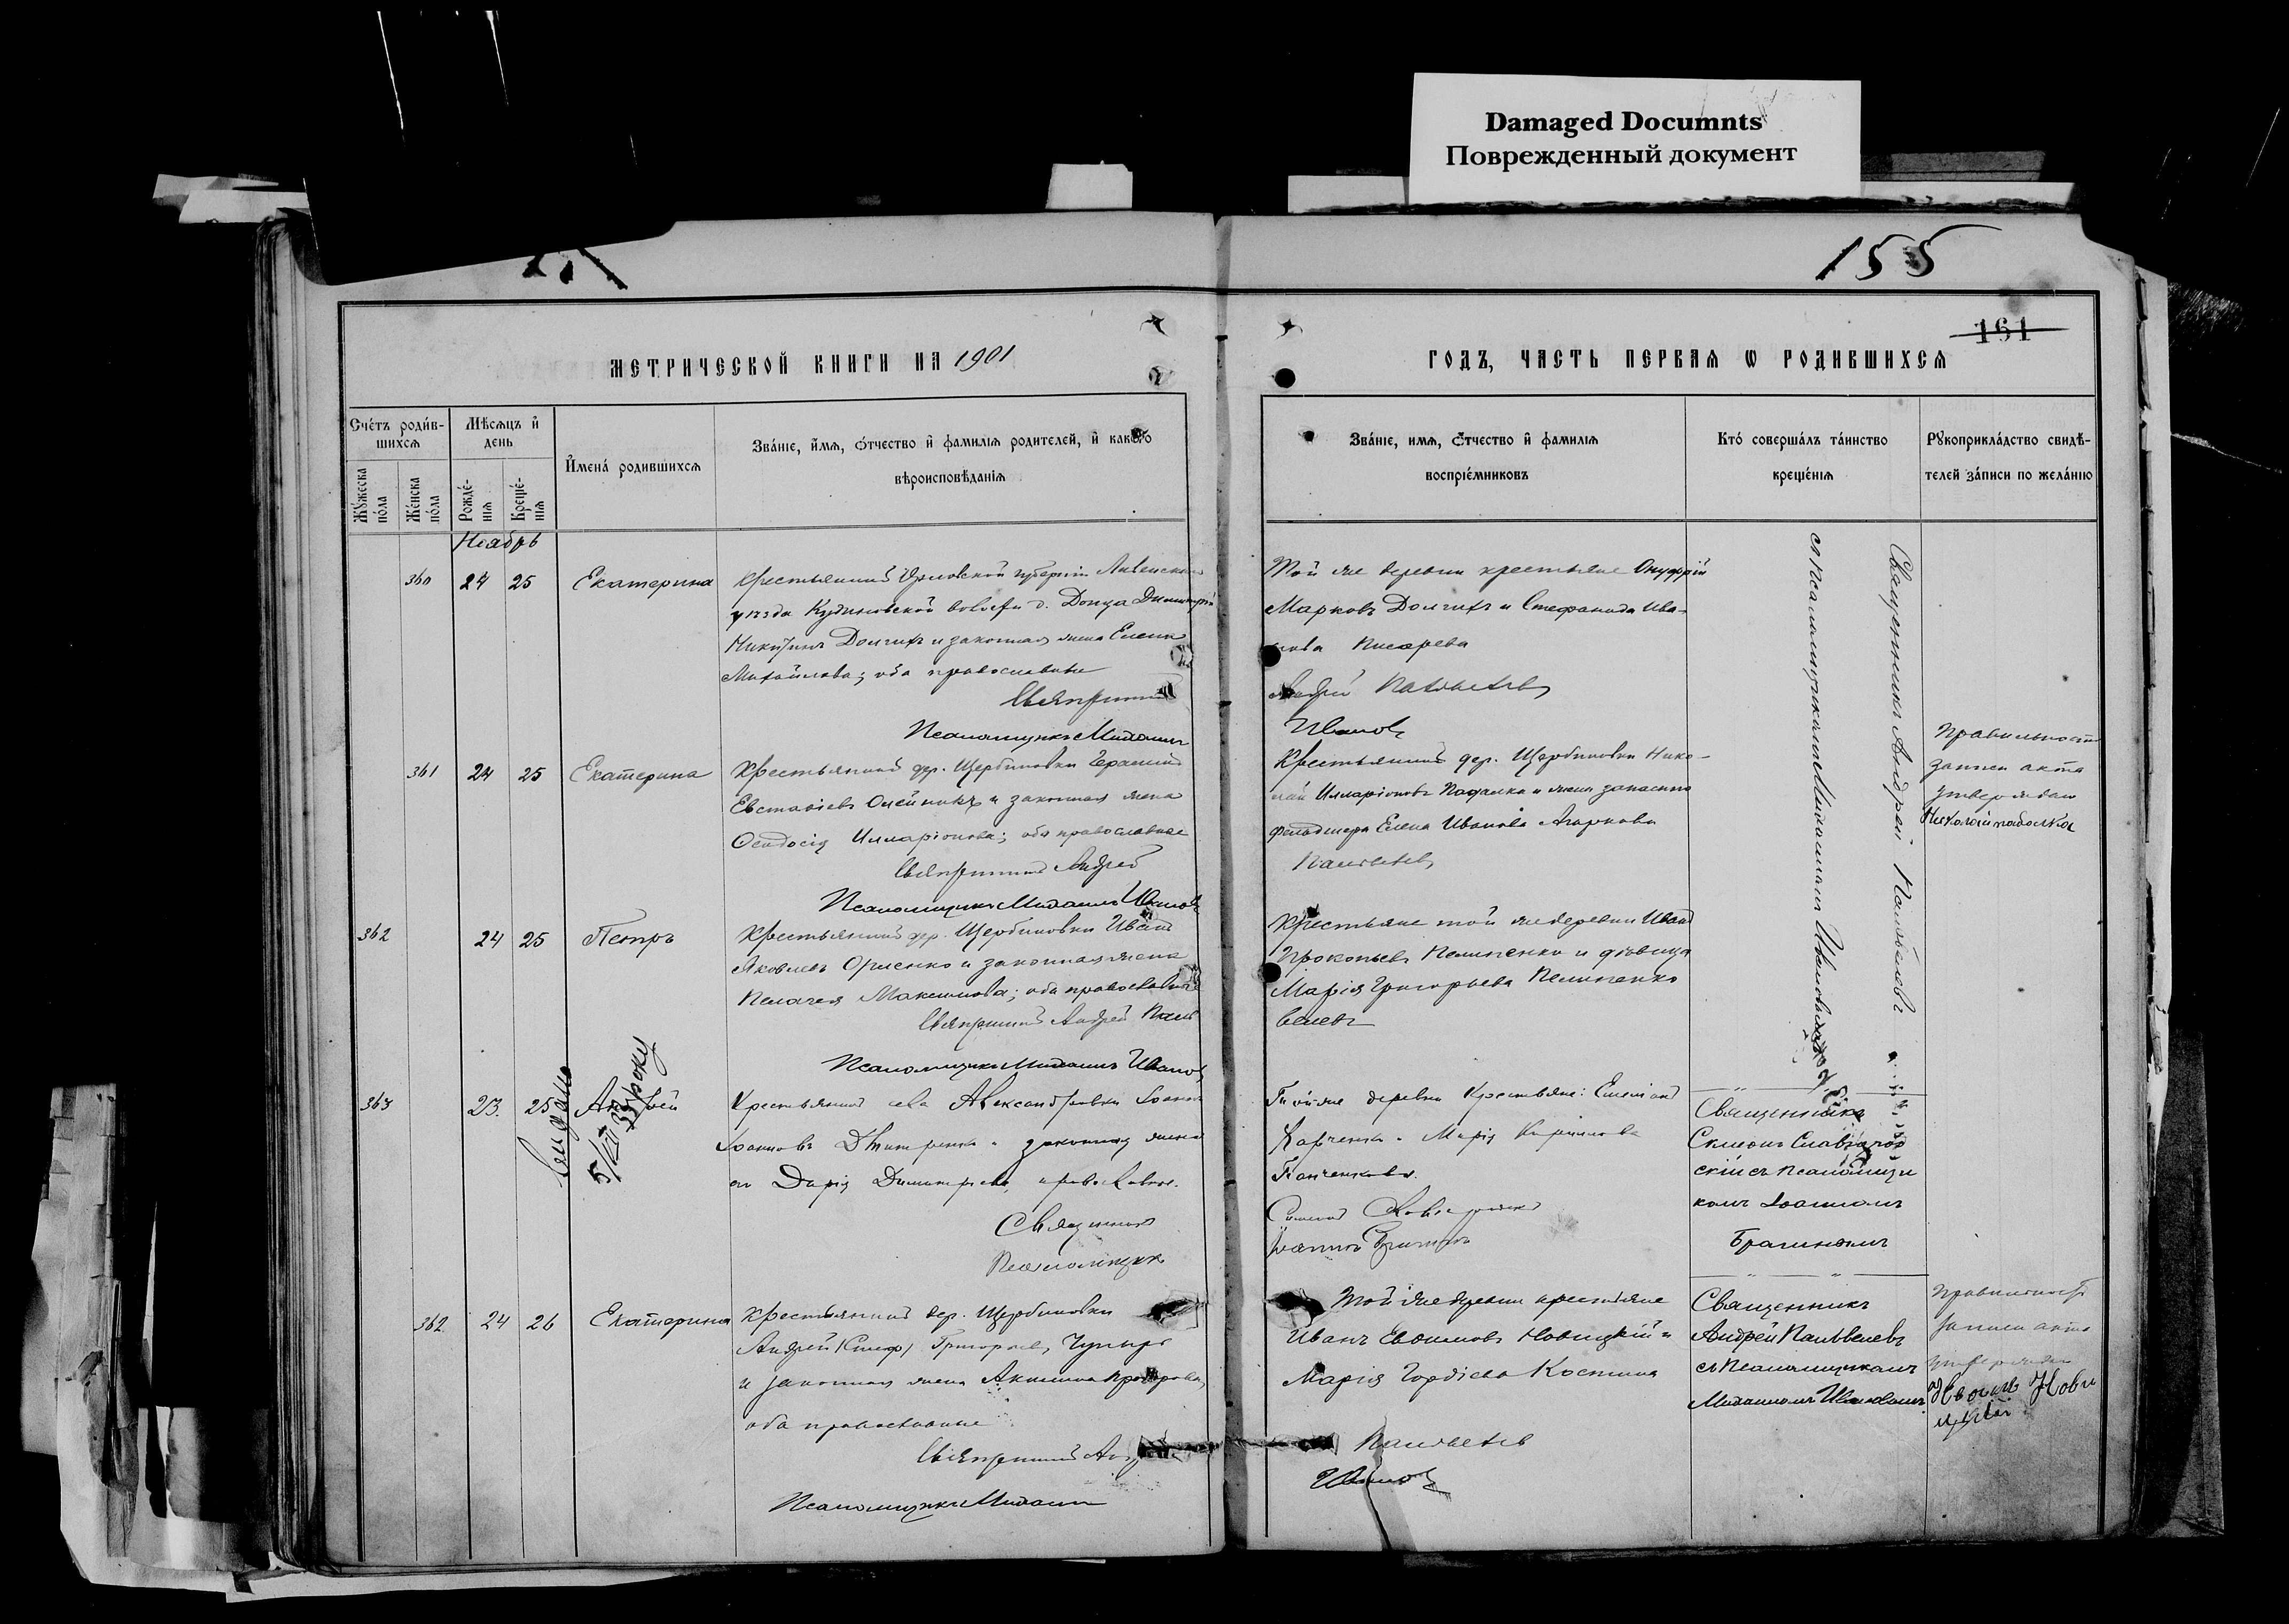 Damaged Documnts
Поврежденный документ
155
161
МЕТРИЧЕСКОЙ КНИГИ НА 1901
ГОДЪ, ЧАСТЬ ПЕРВАЯ Ѡ РОДИВШИХСЯ
Счетъ родив-
шихся
Мужеска
пола
Женска
пола
Мѣсяцъ и
день
Рожде-
нія
Креще-
нія
Имена родившихся
Званіе, имя, отчество и фамилія родителей, и какого
вѣроисповѣданія
Званіе, имя, отчество и фамилія
воспріемниковъ
Кто совершалъ таинство
крещенія
Рукоприкладство свидѣ-
телей записи по желанію
Ноябрь
360 24 25 Екатерина
Крестьянинъ Орловской губерніи Ливенскаго
уѣзда волости д. Донца Димитрій
Никитинъ Долгихъ и законная жена Елена
Михайлова; оба православные
Священникъ
Псаломщикъ Михаилъ
Той же деревни крестьяне Онуфрій
Марковъ Долгихъ и Стефанида Ива-
нова Писарева
Андрей
Ивановъ
Священникъ Андрей
съ псаломщикомъ Михаиломъ Ивановымъ
361 24 25 Екатерина
Крестьянинъ дер. Щербиновки Герасимъ
Евстафіевъ Олейникъ и законная жена
Ѳеодосія Илларіонова; оба православные
Священникъ Андрей
Псаломщикъ Михаилъ Ивановъ
Крестьянинъ дер. Щербиновки Нико-
лай Илларіоновъ и жена запаснаго
фельдшера Елена Иванова Агаркова
Правильность
записи акта
утверждаю
Николай
362 24 25 Петръ
Крестьянинъ дер. Щербиновки Иванъ
Яковлевъ Орленко и законная жена
Пелагея Максимова; оба православные
Священникъ Андрей
Псаломщикъ Михаилъ Ивановъ
Крестьяне той же деревни Иванъ
Прокопьевъ Пелипенко и дѣвица
Марія Григорьева Пелипенко
363 23 25 Андрей
Видано
5/VII 33 року
Крестьянинъ села Александровки Іоаннъ
Іоанновъ и законная жена
его Дарія Димитріева, православные.
Священникъ
Псаломщикъ
Той же деревни Крестьяне:
Харченко и Марія
Панченкова.
Симеонъ
Іоаннъ Брагинъ
Священникъ
Симеонъ
скій съ псаломщи
комъ Іоанномъ
Брагинымъ
362 24 26 Екатерина
Крестьянинъ дер. Щербиновки
Андрей Григорьевъ
и законная жена Акилина
оба православные
Священникъ
Псаломщикъ Михаилъ
Той же деревни крестьяне
Иванъ Евфимовъ Новицкій и
Марія Гордіева Костина
Ивановъ
Священникъ
Андрей
съ псаломщикомъ
Михаиломъ Ивановымъ
Правильность
записи акта
утверждаю